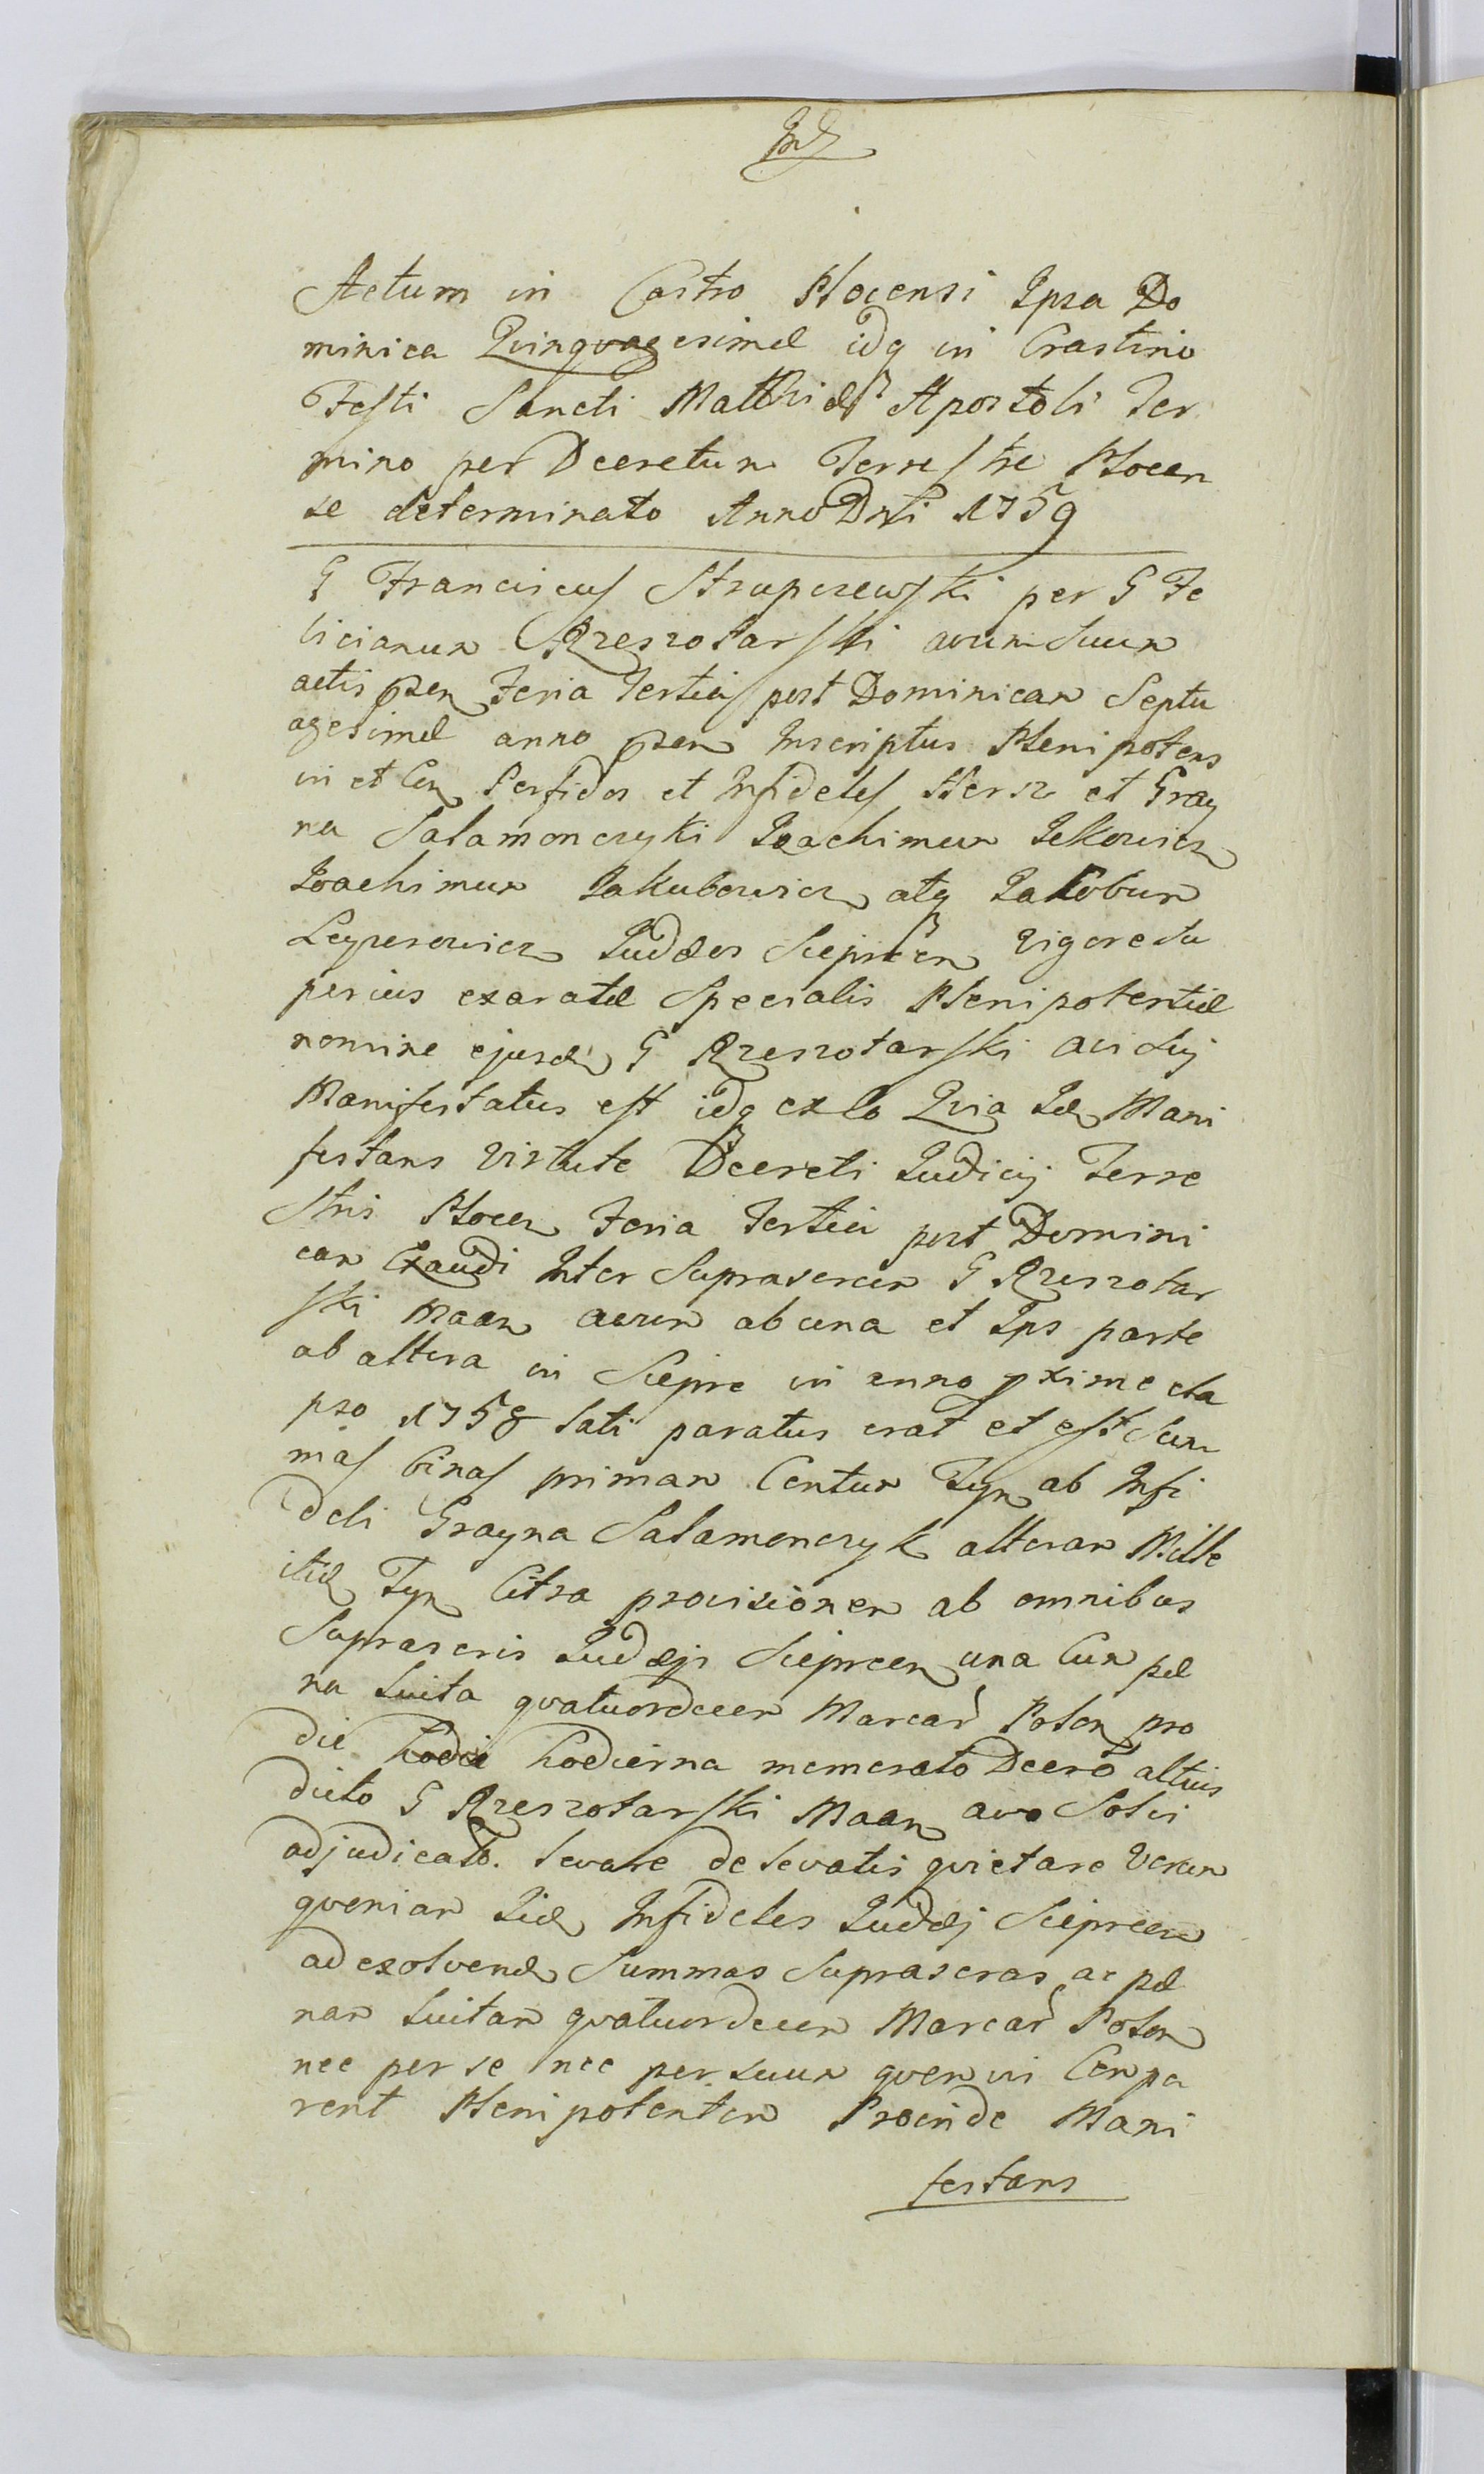 Actum in Castro Plocensi Ipsa Do
minica Qvinqvagesimæ idq in Crastino
Festi Sancti Matthiæ Apostoli Ter
mino per Dcenetum Terrestre Plocen
se determinato Anno Dni 1759
G Franciscus Strupczewski per G Fe
licianum Rzeszotarski avum Suum
actis pñen Feria Tertia post Dominicam Septu
agesimæ anno pñen Inscriptus Plenipotens
in et Con Perfidos et Infideles Hersz et Gray
na Salamonczyki Joachimum Jelkowicz
Joachimum Jakubowicz atq Jakobum
Leyzerowicz Judæos Sieprcen vigore Su
perius exaratæ Specialis Plenipotentiæ
nomine ejusd G Rzeszotarski avi Suj
Manifestatus est idq ex eo Qvia Id Mani
festans virtute Dcereti Judicij Terre
stris Plocen Feria Tertia post Domini
cam Exaudi Inter Suprascrcum G Rzeszotar
ski Maan avum ab una et Ips parte
ab altera in Siepre in anno pxime ela
pso 1758 lati paratus erat et est Sum
mas binas primam Centum Tyn ab Infi
deli Grayna Salamonczyk alteram Mille
itid Tyn Citra provisionem ab omnibus
Suprascris Judæjs Sieprcen una Cum pæ
na luita qvatuordecem Marcar Polon pro
die hodie hodierna memorato Dcero altius
dicto G Rzeszotarski Maan avo Solvi
adjudicato. levare de levatis qvietare Verum
qvoniam Iid Infideles Judæj Sieprcen
ad exolvend Summas Suprascras ac pæ
nam luitam qvatuordecem Marcar Polon
nec per se nec per suum qvemvis Compa
rent Plenipotentem Proinde Mani
festans